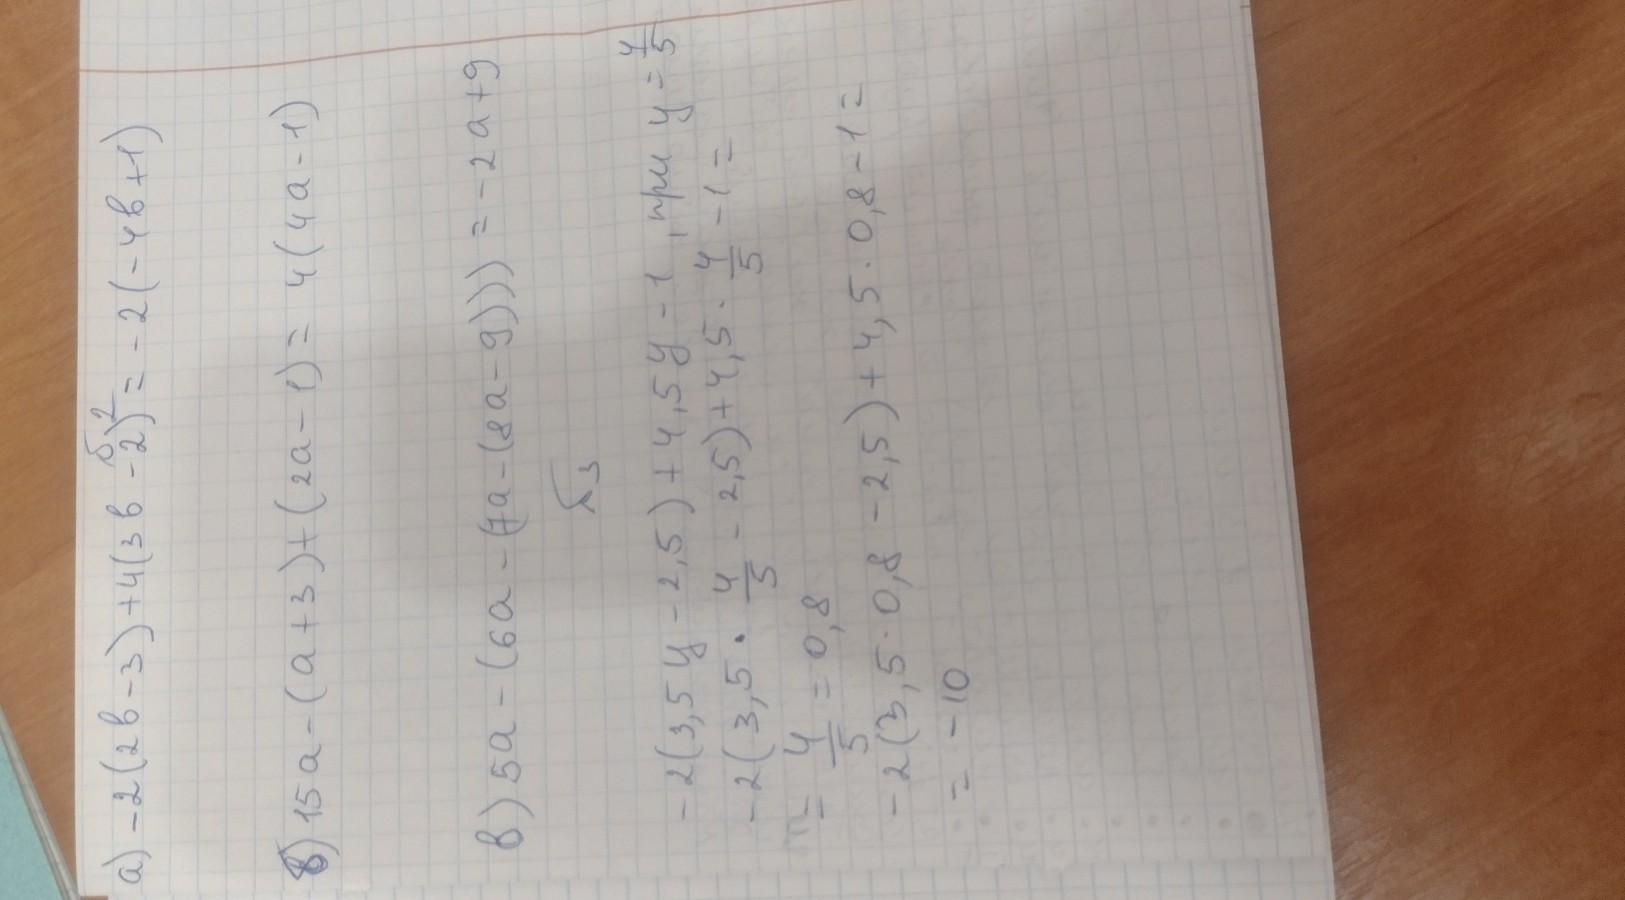 а) -2(2в-3)+4(3в-2)=-2(-4в+1)
б) 15а-(а+3)+(2а-1)=4(4а-1)
в) 5а-(6а-(7а-(8а-9))))=-2а+9
√3
-2(3,5у-2,5)+4,5у-1, при у=4/5
-2(3,5·4/5-2,5)+4,5·4/5-1=
=4/5=0,8
-2(3,5·0,8-2,5)+4,5·0,8-1=
=-10